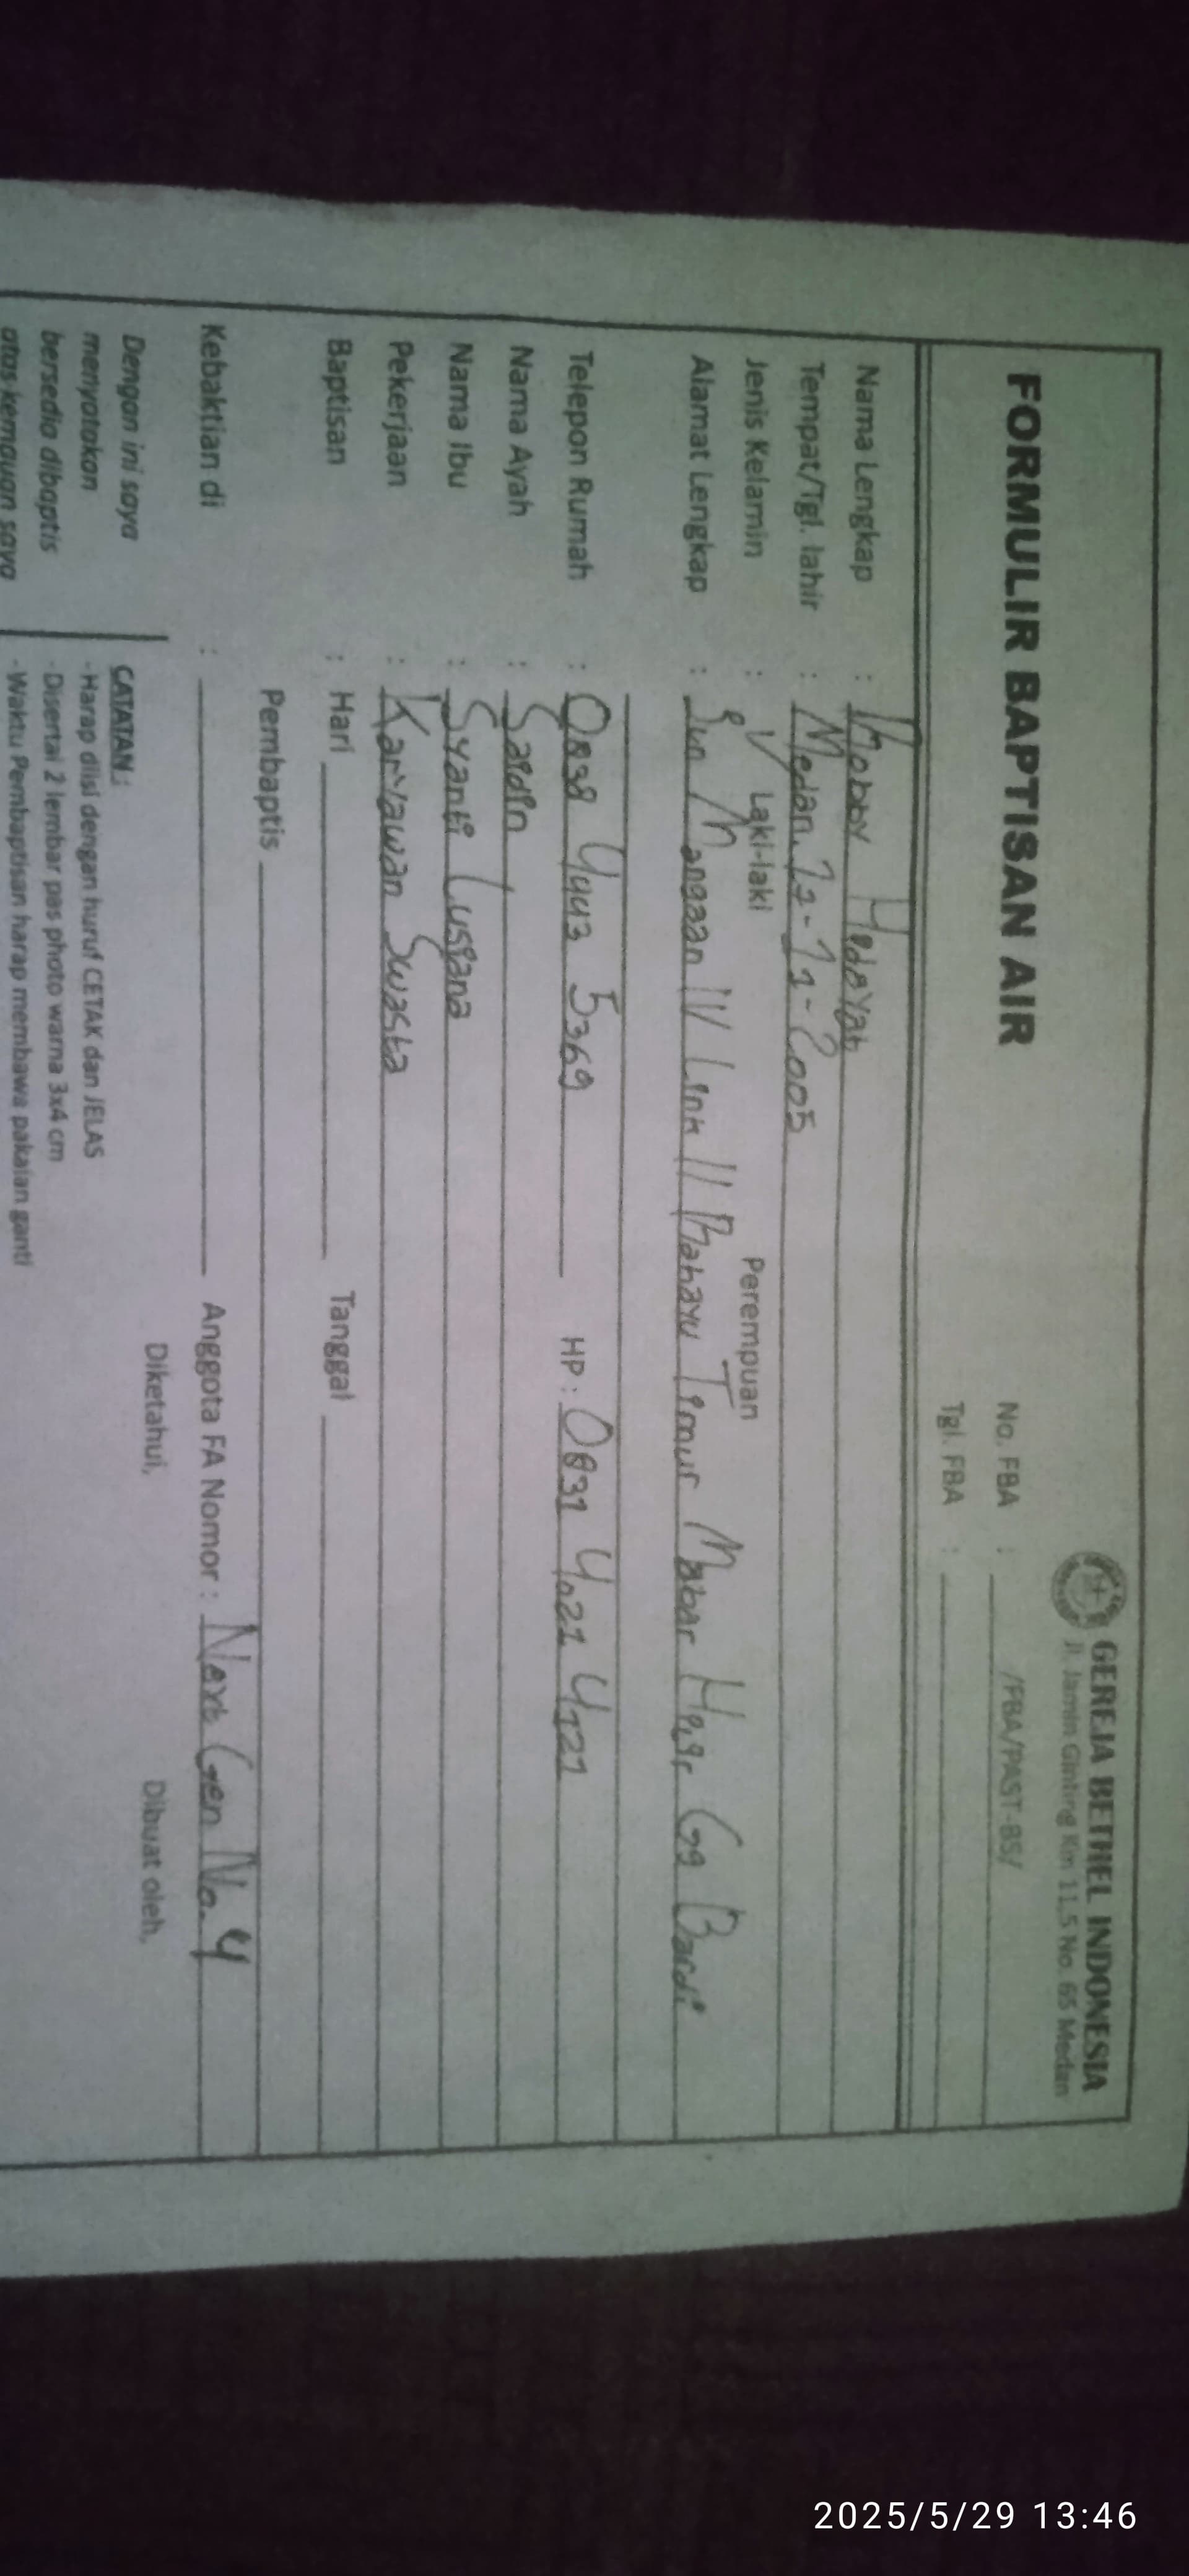 GEREJA BETHEL INDONESIA
Jl. Jamin Ginting Km 11,5 No. 65 Medan
FORMULIR BAPTISAN AIR
No. FBA : /FBA/PAST-BS/
Tgl. FBA :
Nama Lengkap : Robby Hidayah
Tempat/Tgl. lahir : Medan, 12-12-2005
Jenis Kelamin : Laki-laki Perempuan
Alamat Lengkap : Mangaan IV Link III Rahayu Timur Mabar Hilir Gg Bardi
Telepon Rumah : 0838 4443 5369 HP : 0831 4021 4721
Nama Ayah : Saidin
Nama Ibu : Syanti Lusiana
Pekerjaan : Karyawan Swasta
Baptisan : Hari Tanggal
Pembaptis
Kebaktian di : Anggota FA Nomor : Next Gen No. 4
Dengan ini saya
menyatakan
bersedia dibaptis
atas kemauan saya
CATATAN :
-Harap diisi dengan huruf CETAK dan JELAS
-Disertai 2 lembar pas photo warna 3x4 cm
-Waktu Pembaptisan harap membawa pakaian ganti
Diketahui, Dibuat oleh,
2025/5/29 13:46